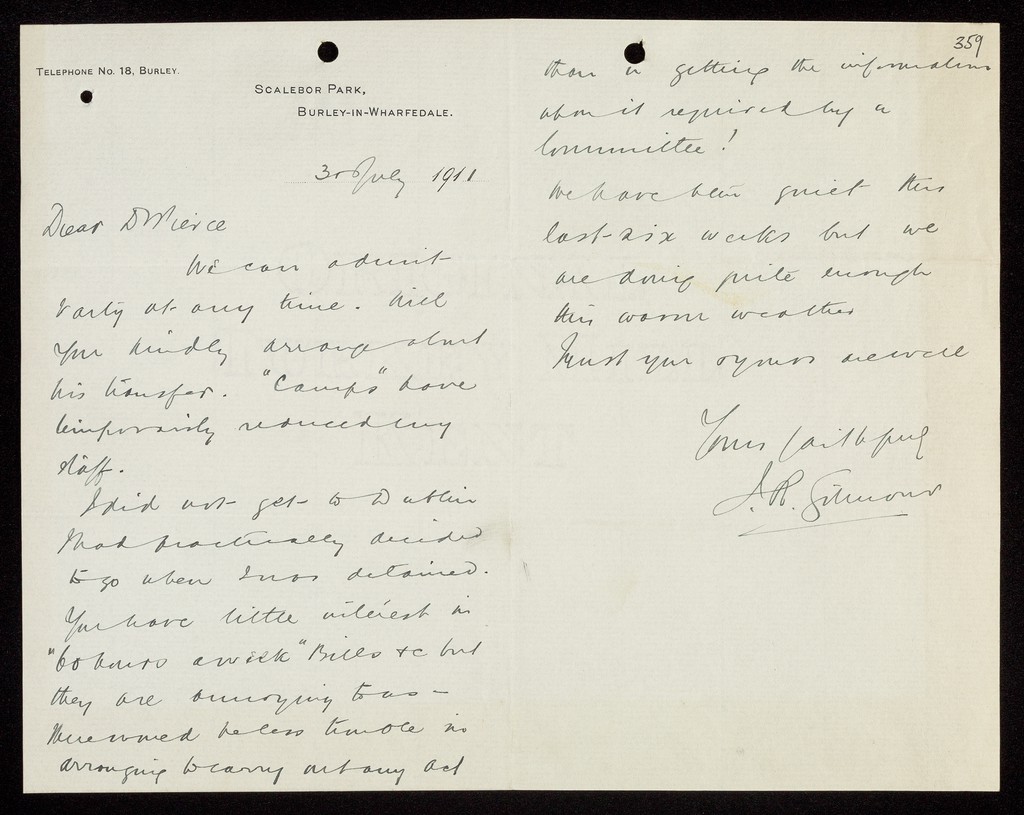 TELEPHONE No. 18, BURLEY.
SCALEBOR PARK,
BURLEY-IN-WHARFEDALE.
30 July 1911
Dear Dr Pierce
We can admit
at any time. Will
you kindly arrange about
his transfer. "Camps" have
temporarily reduced my
staff.
I did not get to Dublin
I had practically decided
to go when I was detained.
You have little interest in
"60 hours a week" Bills &c but
they are annoying to us –
There would be less trouble in
arranging to carry out any Act
359
than in getting the information
about it required by a
Committee!
We have been quiet this
last six weeks but we
are doing quite enough
this warm weather
Trust you & yours are well
Yours faithfully
J.R. Gilmour